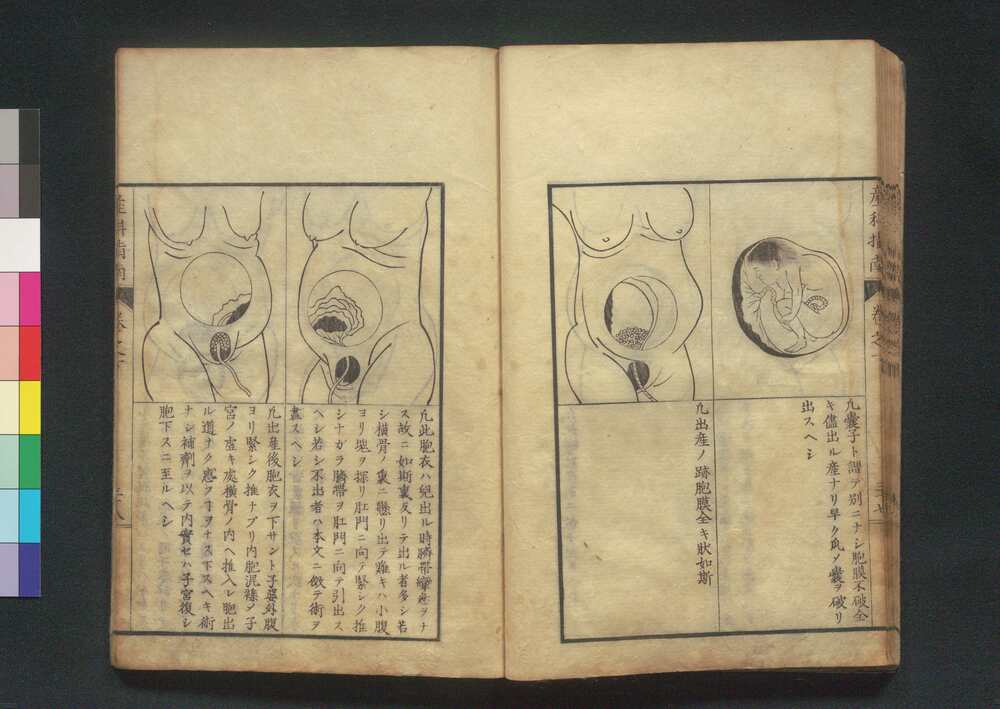 産科指南
巻之
凢嚢子ト謂テ別ニナシ胞膜不破全
キ儘出ル産ナリ早ク此ノ嚢ヲ破リ
出スヘシ
凢出産ノ跡胞膜全キ狀如斯
凢此胞衣ハ絶出ル時臍帶纏
ス故ニ如斯裏反リテ出ル者多シ若
シ横骨ノ裏ニ懸リ出テ難キハ小腹
ヨリ塊ヲ探リ肛門ニ向テ緊シク推
シナガラ臍帶ヲ肛門ニ向テ引出ス
ヘシ若シ不出者ハ本文ニ倣テ術ヲ
盡スヘシ
凢出産後胞衣ヲ下サント子婆外腹
ヨリ緊シク推ナブリ内胞混シ子
宮ノ虚キ處横骨ノ内ヘ推入レ胞出
ル道ナク惑フヿヲナス下スヘキ術
ナシ補劑ヲ以テ内實セハ子宮復シ
胞下スニ至ルヘシ
産科指南
巻之